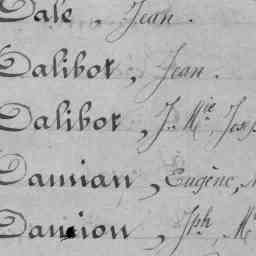 Dale, Jean.
Dalibot, Jean.
Dalibot, J. Mie, Josep
Damian, Eugène, M
Damion, Jph, M